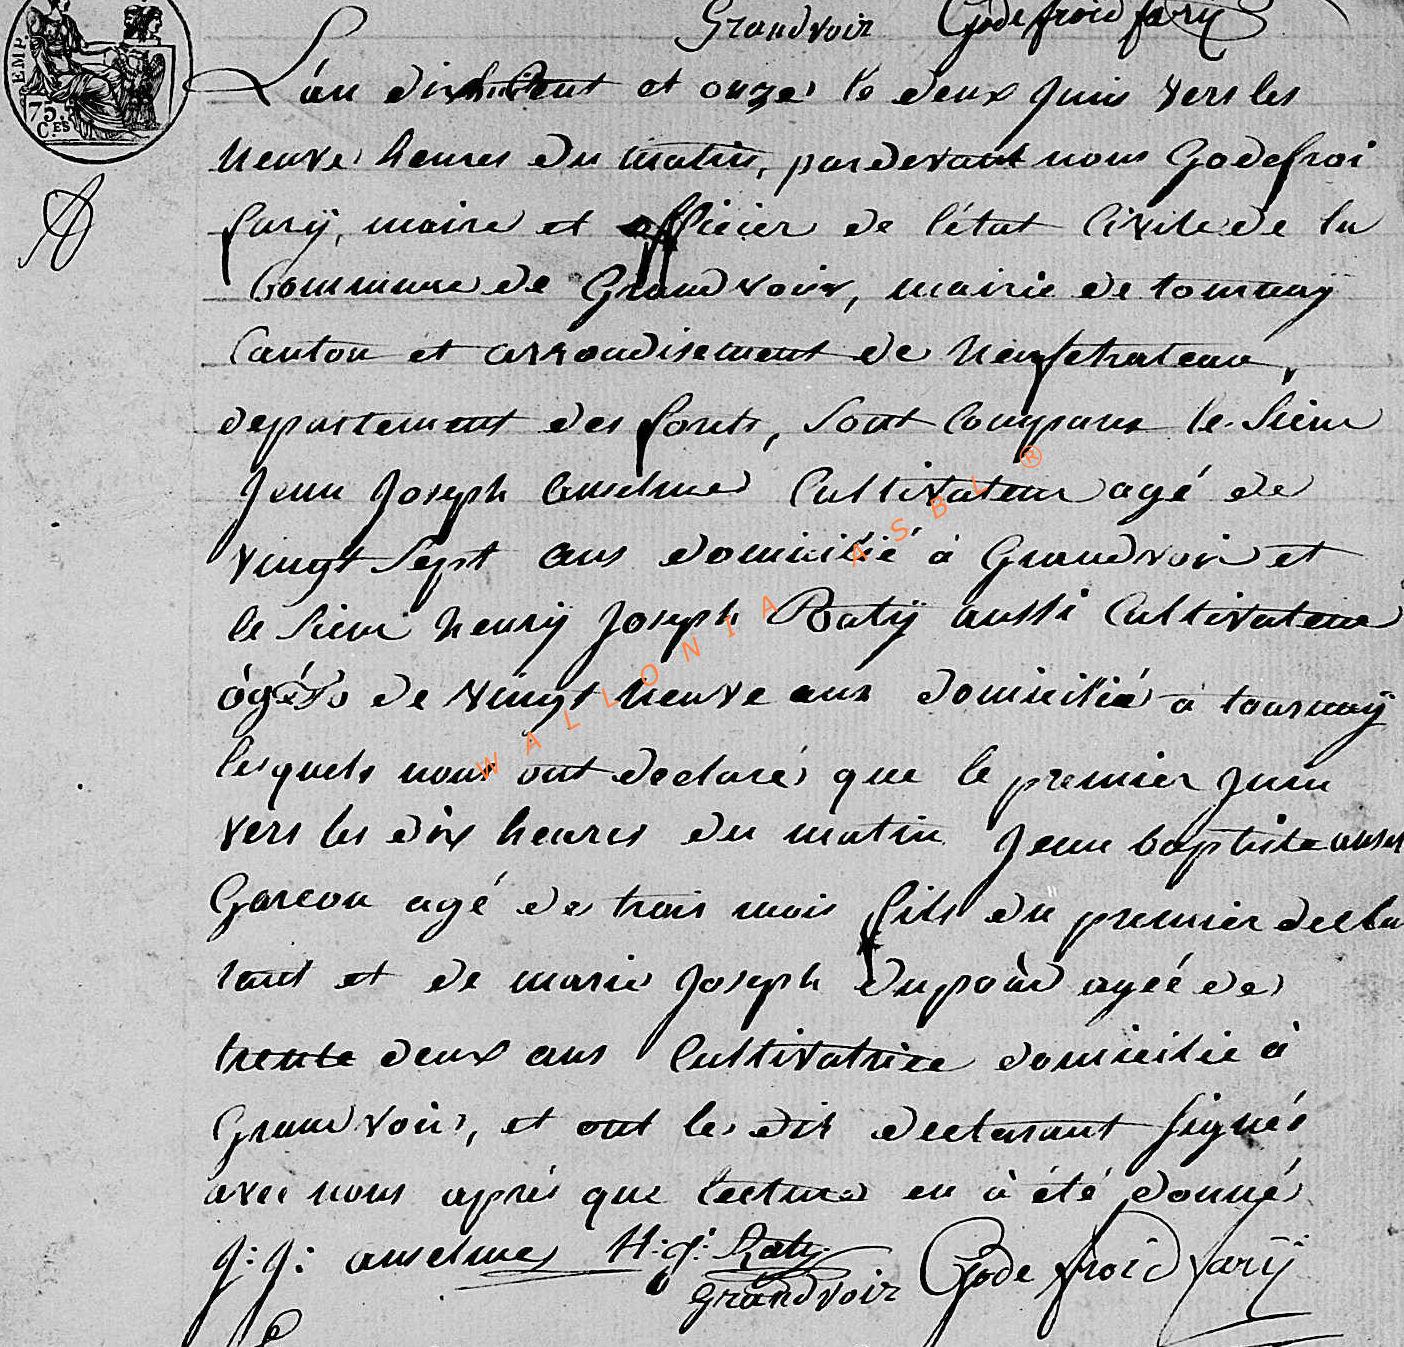 Grandvoir Godefroid fary
L'án dix huit cent et onze le deux Juin vers les
neuve heures du matin, pardevant nous Godefroi
fary, maire et officier de l'état Civile de la
Commune de Grandvoir, mairie de tournaÿ
Canton et arrondisement de Neufchateau,
departement des forets, sont comparus le Sieur
Jean Joseph Anselme Cultivateur agé de
vingt Sept ans domicilié à Grandvoir et
le Sieur henrÿ Joseph Ratÿ aussi Cultivateur
de vingt neuve ans domicilié a tournaÿ
lesquels nous ont declarés que le premier Juin
vers les dix heures du matin Jean baptiste
Garcon agé de trois mois fils du premier decla
rant et de marie Joseph agée de
trente deux ans Cultivatrice domicilie à
Grandvoir, et ont les dit declarant Signés
avec nous aprés que lecture en à été donné
J: J: anselme H: J: Raty Godefroid farÿ
Grandvoir
EMP.
75.
C.ES
WALLONIA ASBL ®